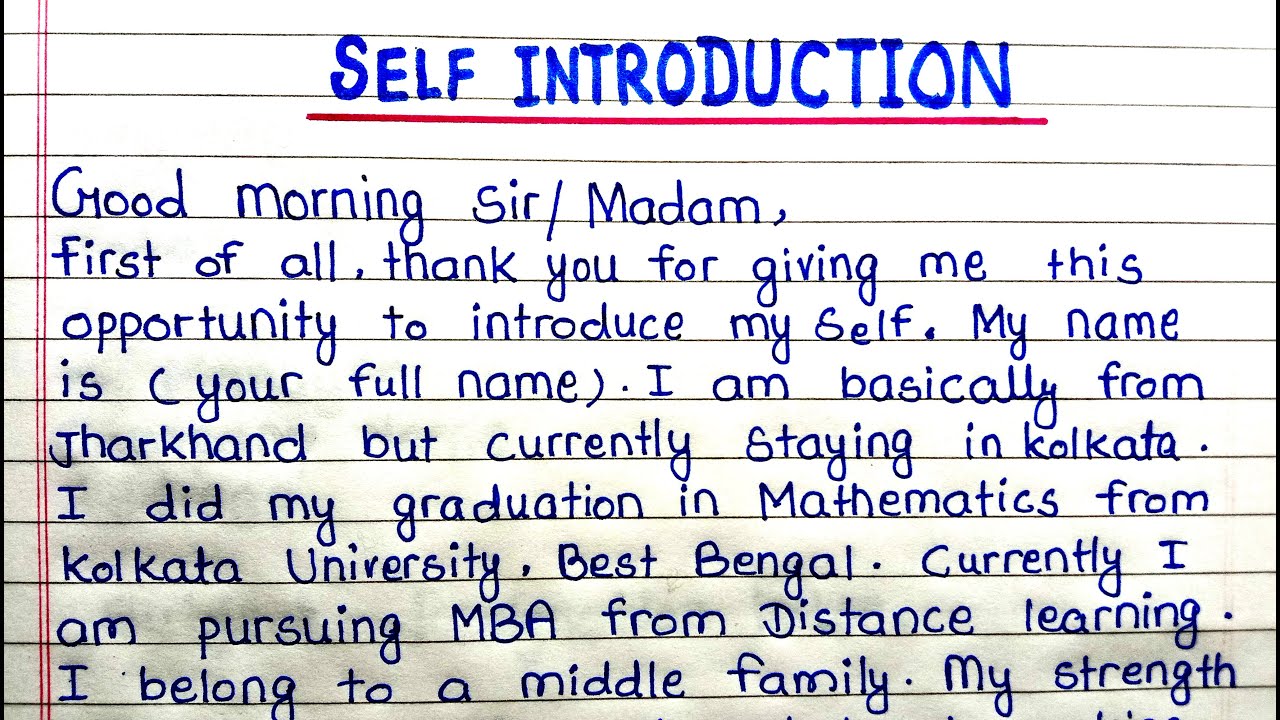 SELF INTRODUCTION
Good morning Sir/ Madam,
first of all, thank you for giving me this
opportunity to introduce my self. My name
is (your full name). I am basically from
Jharkhand but currently staying in kolkata.
I did my graduation in Mathematics from
Kolkata University, Best Bengal. Currently I
am pursuing MBA from Distance learning.
I belong to a middle family. My strength